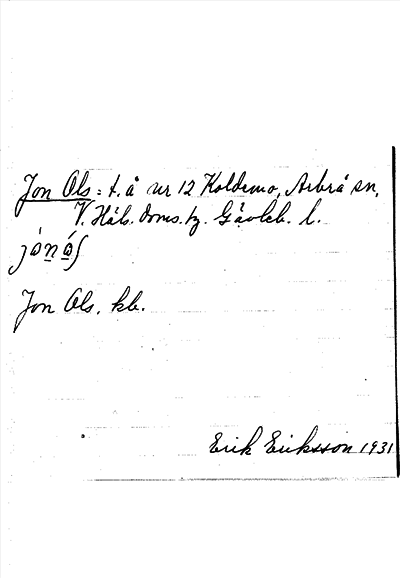 Jon Ols: t. å nr 12 Koldemo, Arbrå sn,
V. Häls. doms. tg. Gävleb. l.
jónás
Jon Ols. kb.
Erik Eriksson 1931